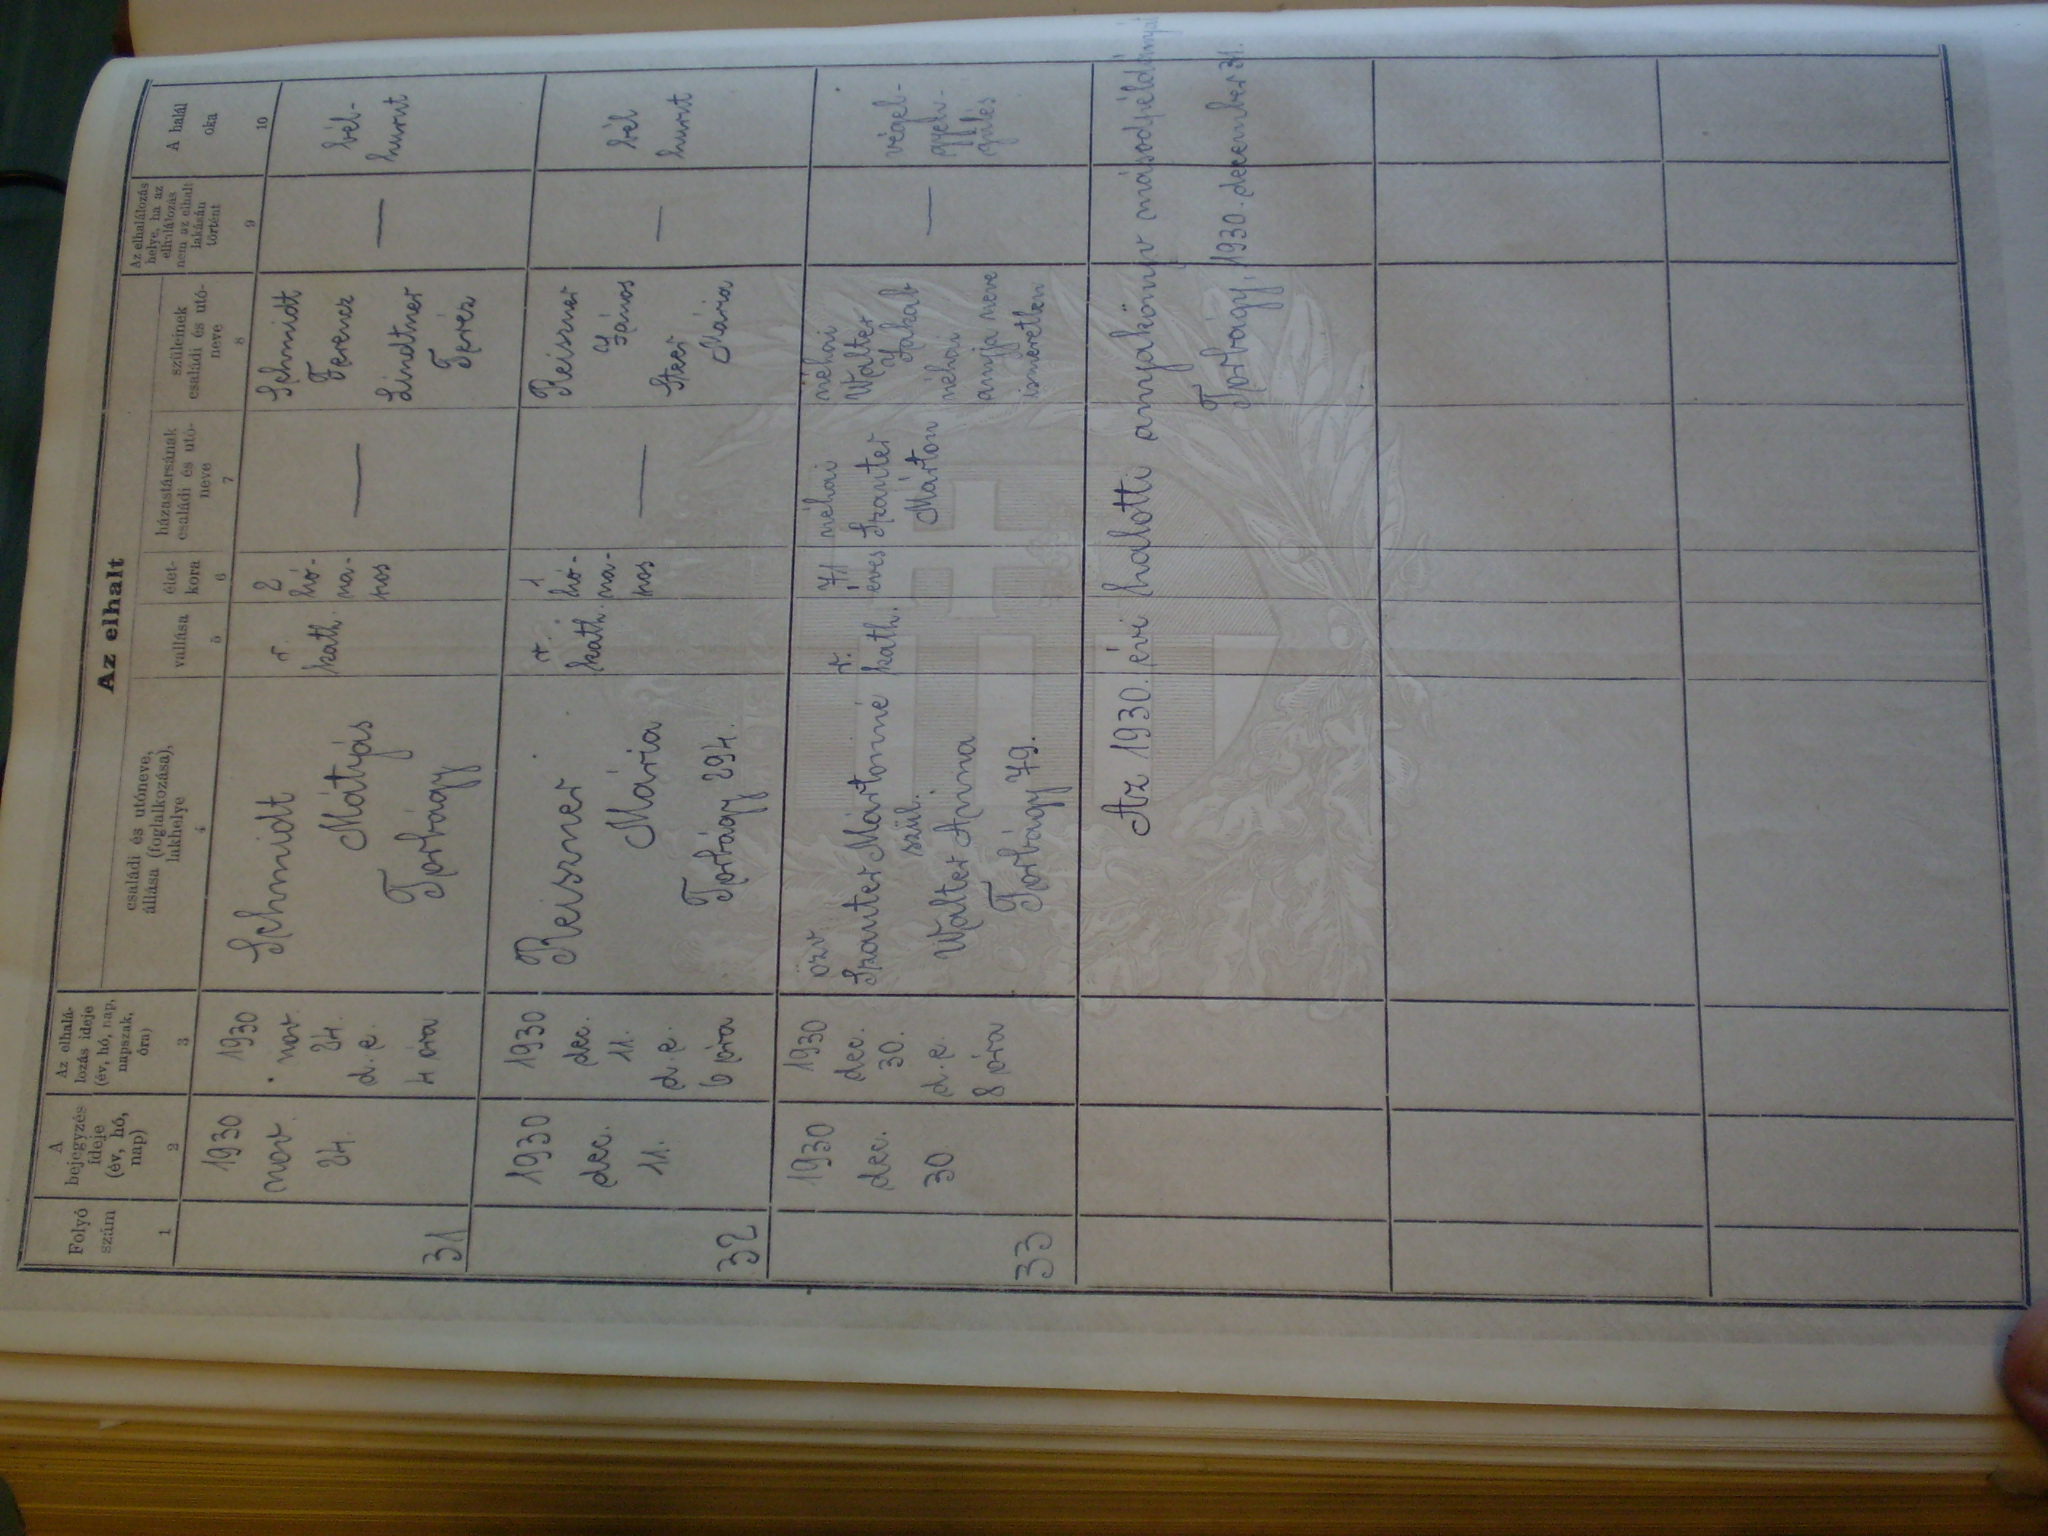 Az elhalt
Folyó
szám
A
bejegyzés
ideje
(év, hó,
nap)
Az elhalá-
lozás ideje
(év, hó, nap,
napszak,
óra)
családi és utóneve,
állása (foglalkozása),
lakhelye
vallása
élet-
kora
házastársának
családi és utó-
neve
szüleinek
családi és utó-
neve
Az elhalálozás
helye, ha az
elhalálozás
nem az elhalt
lakásán
történt
A halál
oka
1
2
3
4
5
6
7
8
9
10
31
1930
nov.
24.
1930
nov.
24.
d. e.
4 óra
Schmidt
Mátyás
Torbágy
r.
kath.
2
hó-
na-
pos
—
Schmidt
Ferenc
Lindtner
Teréz
—
bél-
hurut
32
1930
dec.
11.
1930
dec.
11.
d. e.
6 óra
Reiszner
Mária
Torbágy 294.
r.
kath.
1
hó-
na-
pos
—
Reiszner
János
Steer
Mária
—
bél
hurut
33
1930
dec.
30
1930
dec.
30.
d. e.
8 óra
özv
Szauter Mártonné
szül.
Walter Anna
Torbágy 79.
r.
kath.
71
éves
néhai
Szauter
Márton
néhai
Walter
Jakab
néhai
anyja neve
ismeretlen
—
végel-
gyen-
gülés
Az 1930. évi halotti anyakönyv másodpéldányát
Torbágy, 1930. december 31.